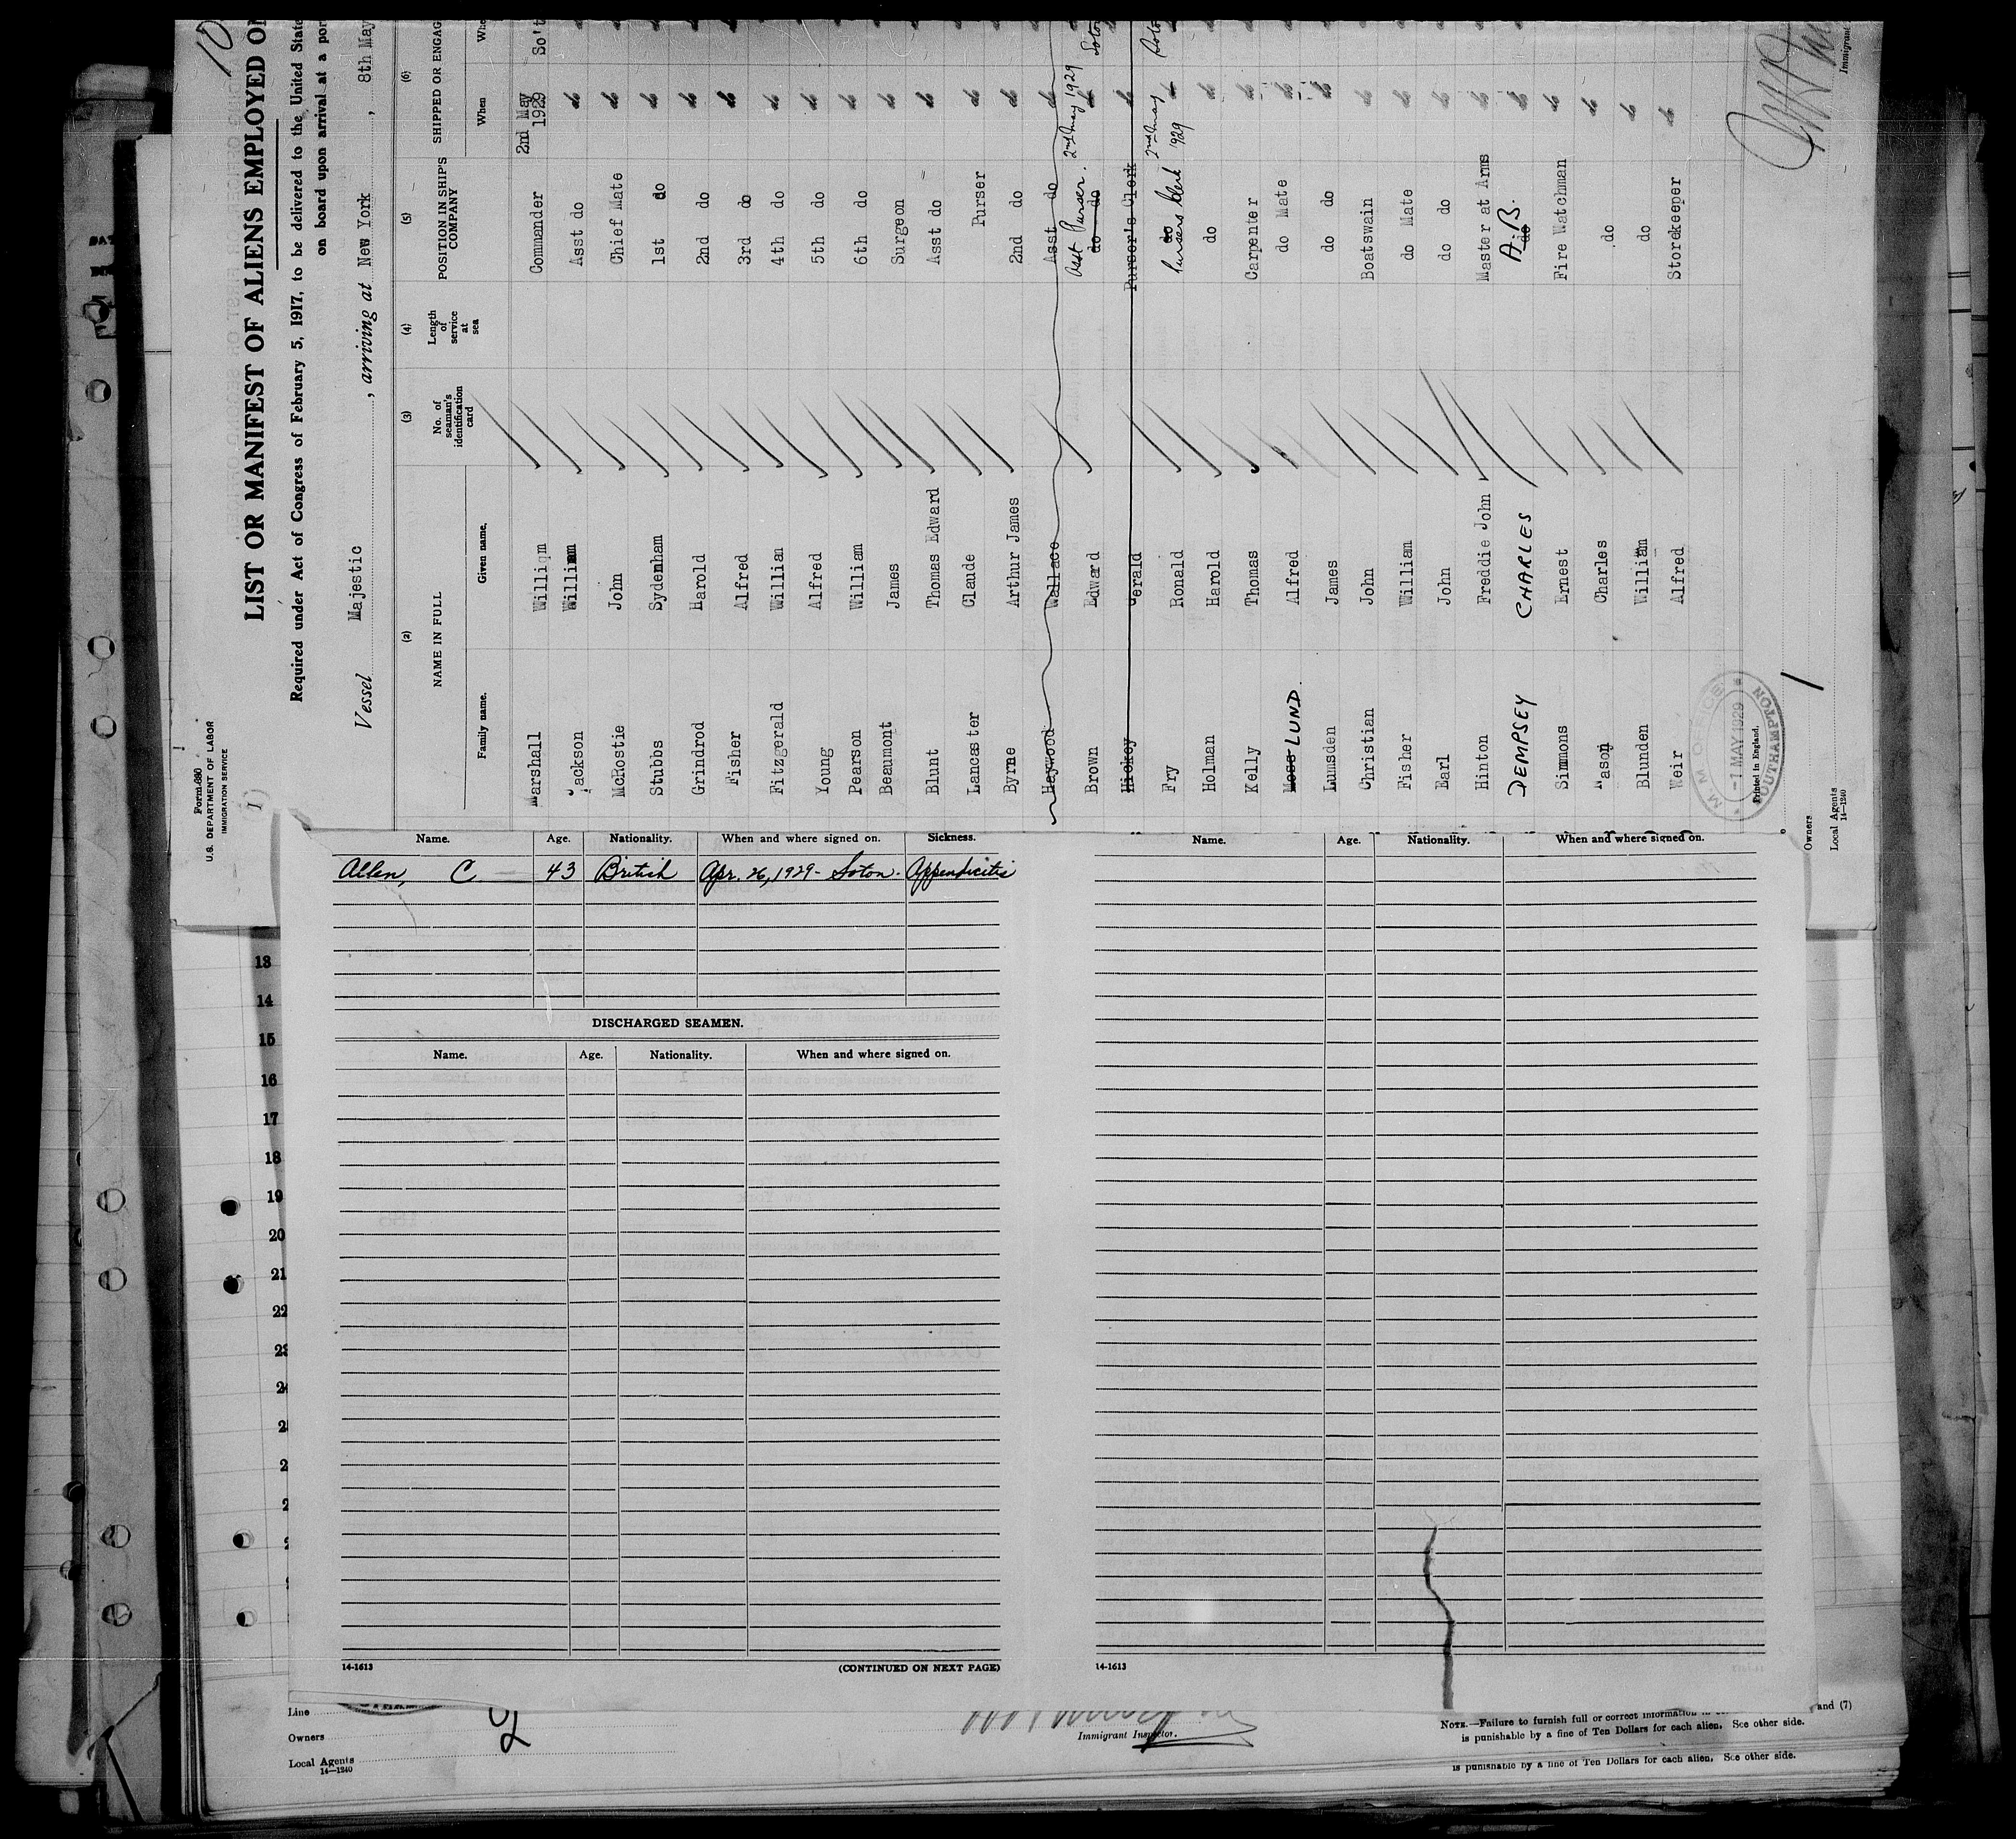 10
LIST OR MANIFEST OF ALIENS EMPLOYED ON
Required under Act of Congress of February 5, 1917, to be delivered to the United State
on board upon arrival at a por
Form 680
U.S. DEPARTMENT OF LABOR
IMMIGRATION SERVICE
Vessel Majestic, arriving at New York, 8th May
(2) (3) (4) (5) (6)
NAME IN FULL No. of seaman's identification card Length of service at sea POSITION IN SHIP'S COMPANY SHIPPED OR ENGAG
Family name. Given name. When Whe
Marshall William Commander 2nd May 1929 So't
Jackson William Asst do do
McRostie John Chief Mate do
Stubbs Sydenham 1st do do
Grindrod Harold 2nd do do
Fisher Alfred 3rd do do
Fitzgerald Willian 4th do do
Young Alfred 5th do do
Pearson William 6th do do
Beaumont James Surgeon do
Blunt Thomas Edward Asst do do
Lancaster Claude Purser do
Byrne Arthur James 2nd do do
Haywood Wallace Asst do do
Asst Purser. 2nd May 1929 Soton
Brown Edward do do do
Hickey Gerald Purser's Clerk do
Fry Ronald do
Pursers Clerk 2nd May 1929 Soton
Holman Harold do do
Kelly Thomas Carpenter do
Moss LUND. Alfred do Mate do
Lumsden James do do do
Christian John Boatswain do
Fisher William do Mate do
Earl John do do do
Hinton Freddie John Master at Arms do
DEMPSEY CHARLES do A.B. do
Simmons Ernest Fire Watchman do
Mason Charles do do
Blunden William do do
Weir Alfred Storekeeper do
M. M. OFFICE
-7 MAY 1929
SOUTHAMPTON
Printed in England.
Immigrant
Owners
1
Local Agents
14-1240
Name. Age. Nationality. When and where signed on. Sickness.
Allen, C 43 British Apr. 26, 1929 - Soton. Appendicitis
DISCHARGED SEAMEN.
Name. Age. Nationality. When and where signed on.
14-1613
(CONTINUED ON NEXT PAGE)
Name. Age. Nationality. When and where signed on.
14-1613
13
14
15
16
17
18
19
20
21
22
Line
Owners
2
Local Agents
14-1240
Immigrant Inspector.
and (7)
NOTE.—Failure to furnish full or correct information
is punishable by a fine of Ten Dollars for each alien. See other side.
is punishable by a fine of Ten Dollars for each alien. See other side.